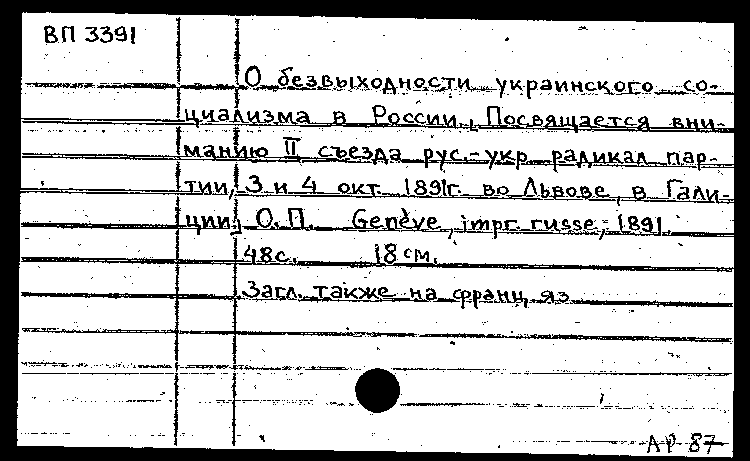 ВП 3391
О безвыходности украинского со-
циализма в России. Посвящается вни-
манию II съезда рус.-укр. радикал. пар-
тии, 3 и 4 окт. 1891г. во Львове, в Гали-
ции. О.П. Genève, impr. russe, 1891.
48с. 18см.
Загл. также на франц. яз.
АР 87